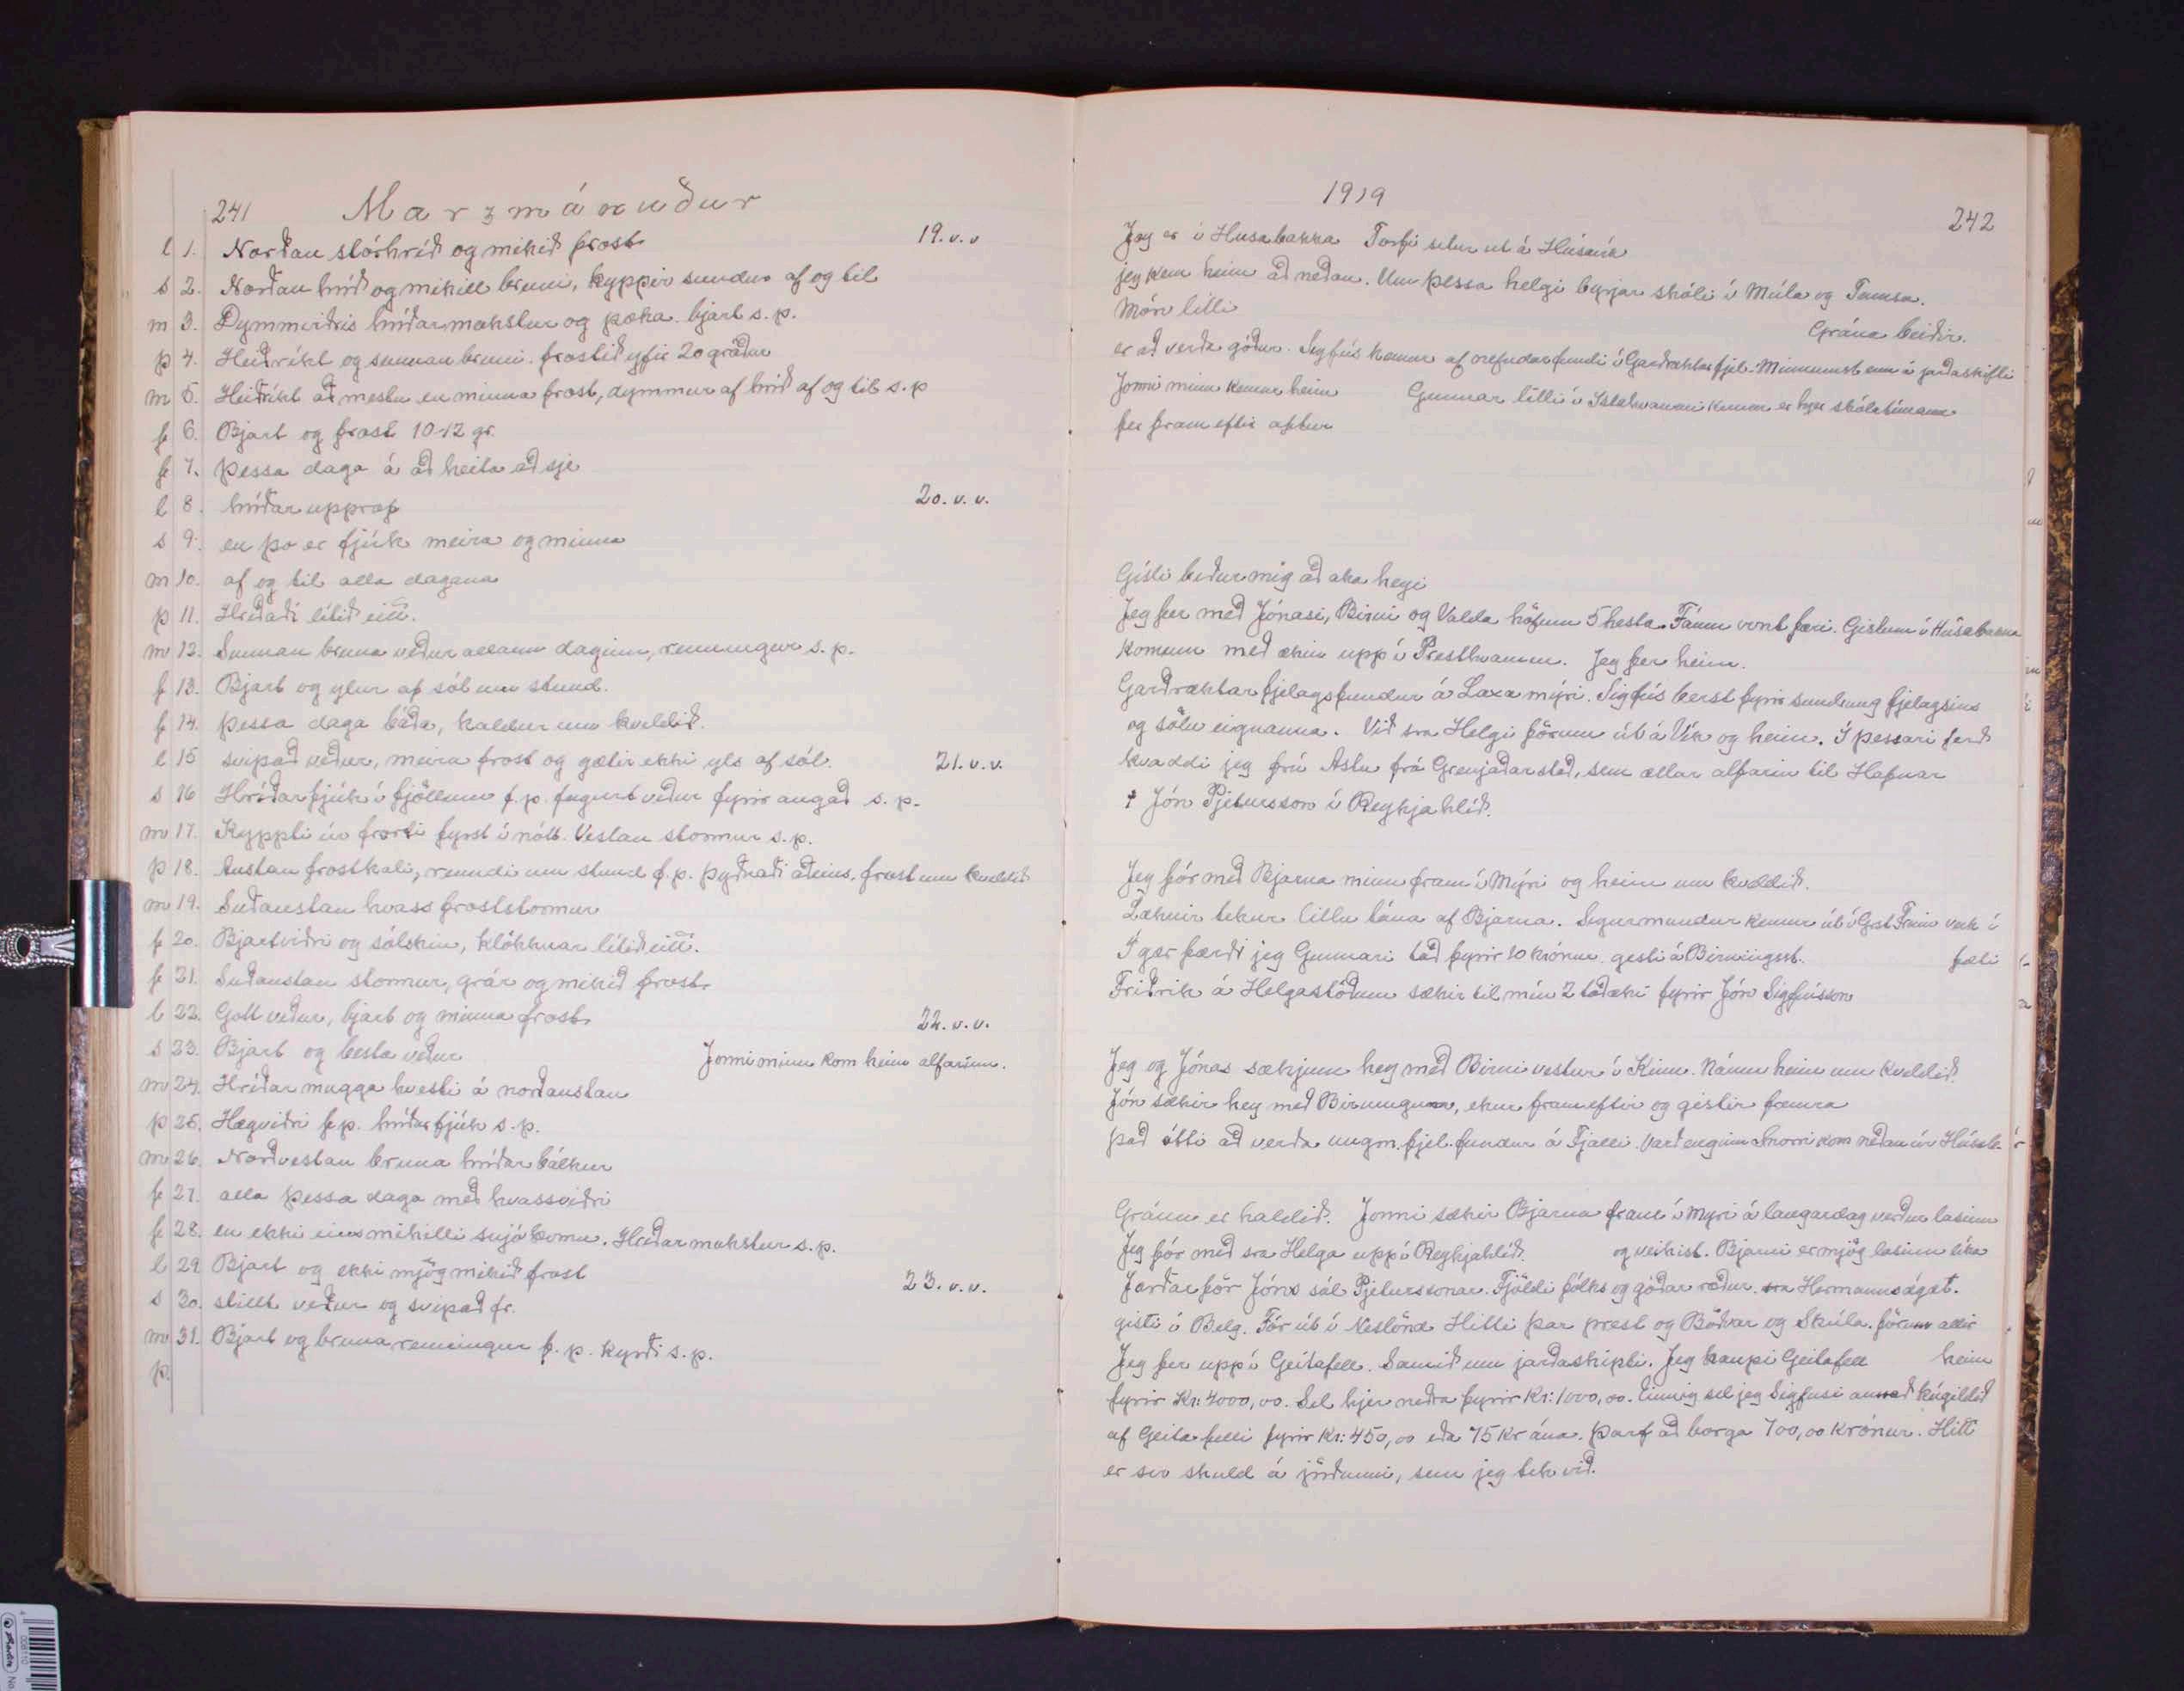 241 Marzmánuður
l 1. Norðan stórhríð og mikið frost 19.v.v
s 2. Norðan hríð og mikill bruni, kyppir sundur af og til
m 3. Dymmviðris hríðarmokstur og þoka. bjart s.p.
þ 4. Heiðríkt og sunnan bruni. frostið yfir 20 gráður
m 5. Heiðríkt að mestu en minna frost, dymmur af hríð af og til s.p
f 6. Bjart og frost 10-12 gr.
f 7. Þessa daga á að heita að sje
l 8. hríðar upprof 20.v.v.
s 9. en þo er fjúk meira og minna
m 10. af og til alla dagana
þ 11. Hríðaði lítið eitt.
m 12. Sunnan bruna veður allann daginn, renningur s.p.
f 13. Bjart og ylur af sól um stund.
f 14. þessa daga báða, kaldur um kveldið.
l 15 svipað veður, meira frost og gætir ekki yls af sól. 21.v.v.
s 16 Hríðarfjúk í fjöllum f.p. fagurt veður fyrir augað s.p.
m 17. Kyppti úr frosti fyrst í nótt. Vestan stormur s.p.
þ 18. Austan frostkali, renndi um stund f.p. þyðnaði aðeins, frost um kveldið
m 19. Suðaustan hvass froststormur
f 20. Bjartviðri og sólskin, klökknar lítið eitt.
f 21. Suðaustan stormur, grár og mikið frost.
l 22. Gott veður, bjart og minna frost. 22.v.v.
s 23. Bjart og besta veður Jonni minn kom heim alfarinn.
m 24. Hríðar mugga hvesti á norðaustan
þ 25. Hægviðri f.p. hríðarfjúk s.p.
m 26. Norðvestan bruna hríðar bálkur
f 27. alla þessa daga með hvassviðri
f 28. en ekki eins mikilli snjókomu. Hríðarmokstur s.p.
l 29 Bjart og ekki mjög mikið frost 23.v.v.
s 30. stillt veður og svipað fr.
m 31. Bjart og bruna renningur f.p. kyrði s.p.
þ.
1919 242
Jeg er í Husabakka Torfi setur ut á Húsavík
jeg kem heim að neðan. Um þessa helgi byrjar skóli í Múla og Tumsa.
Mór litli Grána beiðir.
er að verða góður. Sigfús kemur af nefndarfundi í Garðræktarfjel. Minnumst enn á jarðaskifti
Jonni minn kemur heim Gunnar litli í kemur er hjer skólatímann
fer fram eftir aftur
Gísli biður mig að aka heyi
Jeg fer með Jónasi, Birni og Valda höfum 5 hesta. Fáum vont færi. Gistum í Húsabakka
komum með ækin upp í Presthvamm. Jeg fer heim.
Garðræktarfjelagsfundur á Laxamýri. Sigfús berst fyrir sundrung fjelagsins
og sölu eignanna. Við sra Helgi förum út á Vík og heim. Í þessari ferð
kvaddi jeg frú Aslu frá Grenjaðarstað, sem ætlar alfarin til Hafnar
† Jón Pjetursson í Reykjahlíð.
Jeg fór með Bjarna minn fram í Mýri og heim um kveldið.
Læknir tekur litlu tána af Bjarna. Sigurmundur kemur út í Grst. Finn verk í
Í gær færði jeg Gunnari tað fyrir 10 krónur gisti á Birningsst. fæti
Friðrik á Helgastöðum sækir til mín 2 taðæki fyrir Jón Sigfússon
Jeg og Jónas sækjum hey með Birni vestur í Kinn. Náum heim um kveldið.
Jón sækir hey með Birningum, ekur fram eftir og gistir frammra
það átti að verða ungm. fjel. fundur á Fjalli. Varð enginn Snorri kom neðan úr Húsab.
Gránu er haldið. Jonni sækir Bjarna fram í Myri á laugardag verður lasinn
Jeg fór með sra Helga upp í Reykjahlíð. og veikist. Bjarni er mjög lasinn líka
Jarðarför Jóns sál Pjeturssonar. Fjöldi fólks og góðar ræður. sra Hermanns ágæt.
gisti í Belg. Fór út í Neslönd Hitti þar prest og Böðvar og Skúla. förum allir
Jeg fer upp í Geitafell. Samið um jarðaskipti. Jeg kaupi Geitafell heim
fyrir Kr: 4000,00. Sel hjer neðra fyrir Kr: 1000,00. Einnig sel jeg Sigfusi annað kúgildið
af Geitafelli fyrir Kr: 450,00 eða 75 Kr ána. Þarf að borga 700,00 krónur. Hitt
er svo skuld á jörðunni, sem jeg tek við.